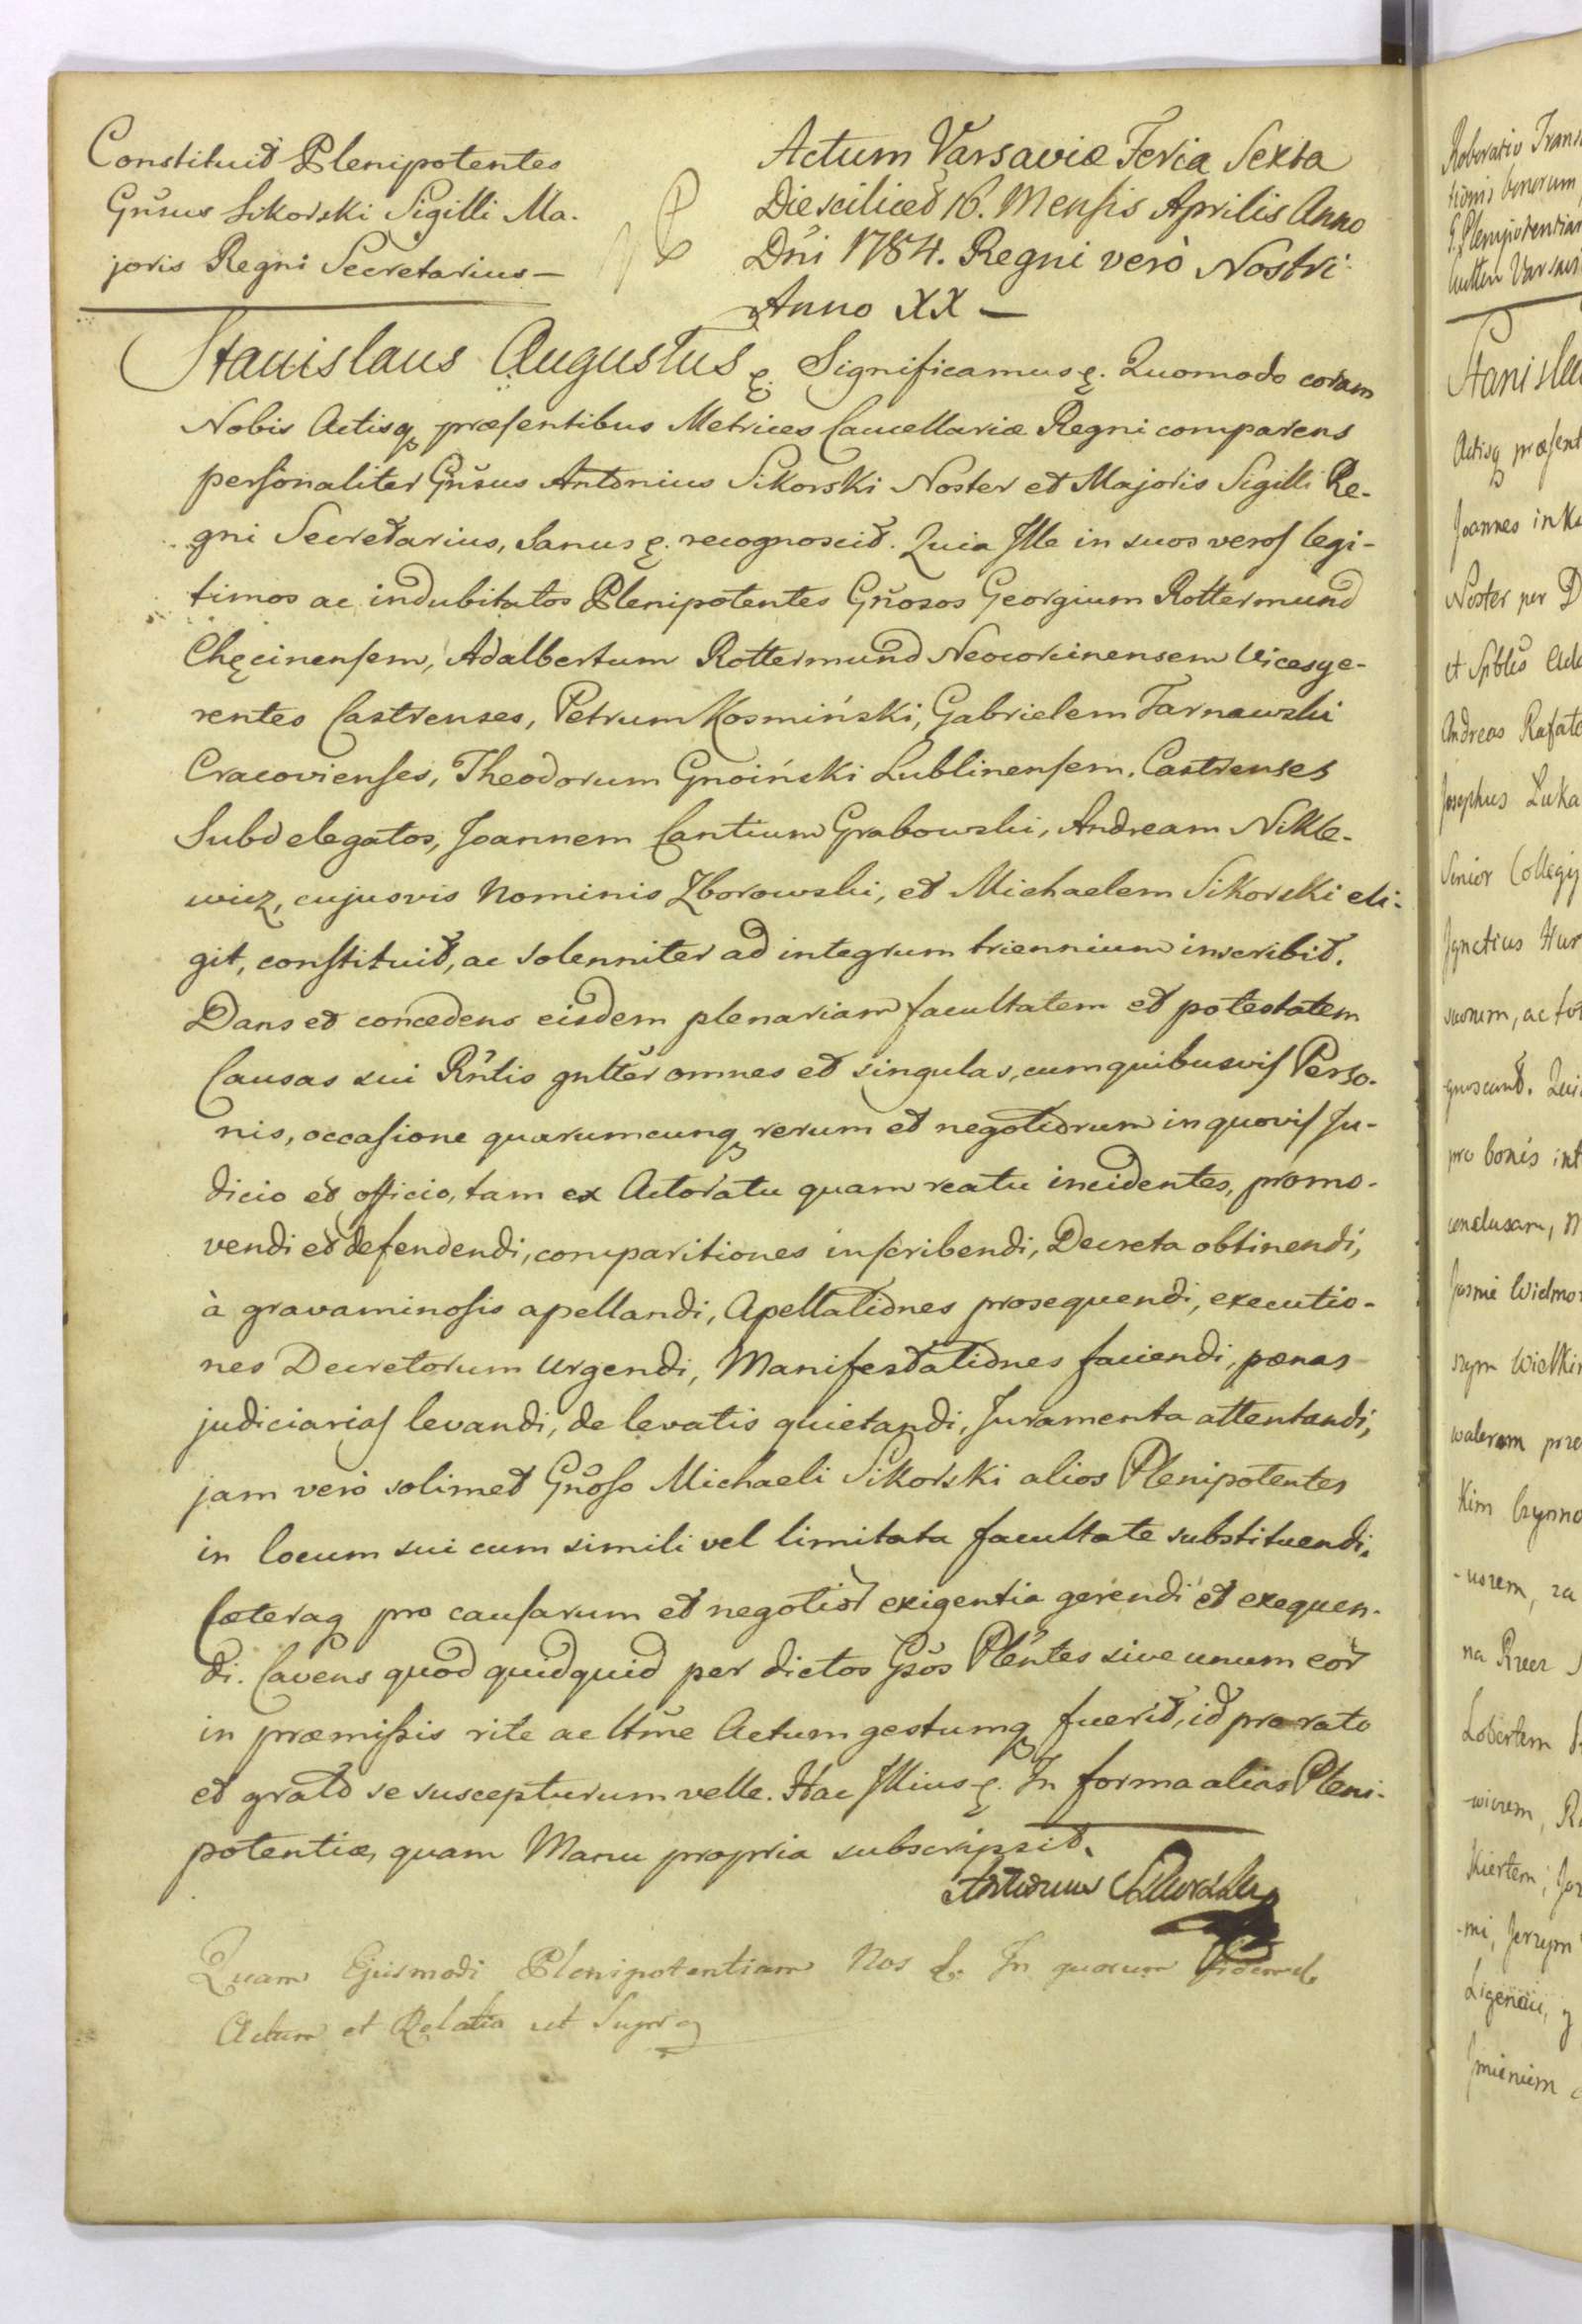 Constituit Plenipotentes
Gñsus Sikorski Sigilli Ma-
joris Regni Secretarius —
Actum Varsaviæ Feria Sexta
Die scilicet 16. Mensis Aprilis Anno
Dñi 1784. Regni verò Nostri
Anno XX —
Stanislaus Augustus &. Significamus &. Quomodo coram
Nobis Actisq præsentibus Metrices Cancellariæ Regni comparens
personaliter Gñsus Antonius Sikorski Noster et Majoris Sigilli Re-
gni Secretarius, sanus &. recognoscit. Quia Ille in suos veros legi-
timos ac indubitatos Plenipotentes Gñosos Georgium Rottermund
Chęcinensem, Adalbertum Rottermund Neocorcinensem Vicesge-
rentes Castrenses, Petrum Kosmiński, Gabrielem Tarnawski
Cracovienses, Theodorum Gnoiński Lublinensem, Castrenses
Subdelegatos, Joannem Cantium Grabowski, Andream Nikle-
wicz, cujusvis Nominis Zborowski, et Michaelem Sikorski eli-
git, constituit, ac solenniter ad integrum triennium inscribit.
Dans et concedens eisdem plenariam facultatem et potestatem
Causas sui Rñtis gnltẽr omnes et singulas, cum quibusvis Perso-
nis, occasione quarumcunq rerum et negotiorum in quovis Ju-
dicio et officio, tam ex Actoratu quam reatu incidentes, promo-
vendi et defendendi, comparitiones inscribendi, Decreta obtinendi,
à gravaminosis apellandi, Apellationes prosequendi, executio-
nes Decretorum urgendi, Manifestationes faciendi, pœnas
judiciarias levandi, de levatis quietandi, Juramenta attentandi,
jam verò solimet Gñoso Michaeli Sikorski alios Plenipotentes
in locum sui cum simili vel limitata facultate substituendi.
Cæteraq pro causarum et negotior exigentia gerendi et exequen-
di. Cavens quod quidquid per dictos Gsos Plẽntes sive unum eor
in præmissis rite ac ltme Actum gestumq fuerit, id pro rato
et grato se suscepturum velle. Hac Illius &. In forma alias Pleni-
potentiæ, quam Manu propria subscripsit.
Antonius Sikorski
Quam Ejusmodi Plenipotentiam Nos &. In quorum fidem &
Actum et Relatio ut Supra
Roboratio Trans
tionis bonorum
Stanisla
Actisq præsent
Joannes in
Noster per D
Andreas Rafał
Josephus Łuka
Senior Collegij
pro bonis int
na Rzecz